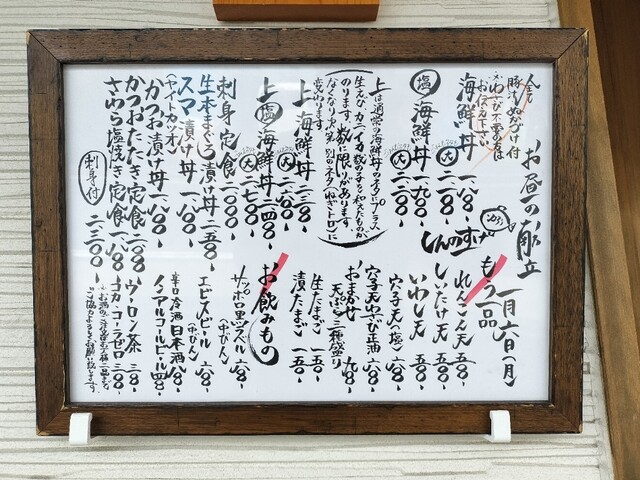 お昼の献立
一月六日(月)
全て豚汁、ぬかづけ付
※わさび不要の方は
お伝え下さい。
海鮮丼 一八〇〇
大 二二〇〇
塩 海鮮丼 一九〇〇
大 二三〇〇
上は通常の海鮮丼のネタにプラス
生えび、カニ、イカ、数の子を和えたものが
のります。数に限りがあります。
なくなり次第、別のネタ(ねぎトロ)に
変わります。
上 海鮮丼 二三〇〇
上 塩 海鮮丼 二四〇〇
刺身定食 二〇〇〇
生本まぐろ漬け丼 二一五〇
スマ漬け丼 一八〇〇
(ヤイトカツオ)
かつお漬け丼 一八〇〇
かつおたたき定食
さわら塩焼き定食
刺身付 二三〇〇
もう一品
れんこん天 五八〇
しいたけ天 五〇〇
いわし天 五八〇
穴子天(塩) 六八〇
穴子天わさび正油 六八〇
おまかせ天ぷら三種盛り 九八〇
生たまご 一五〇
漬たまご 一五〇
お飲みもの
サッポロ黒ラベル(中びん) 六八〇
エビスビール(中びん) 六八〇
辛口冷酒 日本酒
ノンアルコールビール 四八〇
ウーロン茶 三八〇
コカ・コーラゼロ 三八〇